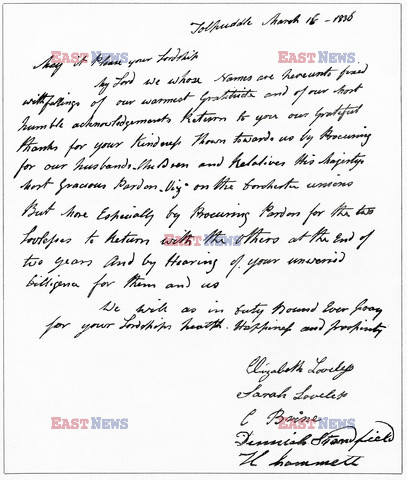 Tolpuddle March 16 - 1836
May it Please your Lordship
My Lord we whose Names are hereunto fixed
with felings of our warmest Gratitude and of our most
humble acknowledgements Return to you our Grateful
thanks for your Kindness Shown towards us by Procuring
for our husbands. Children and Relatives His Majestys
most Gracious Pardon. Viz on the Dorchester unions
But More Especially by Procuring Pardon for the two
Lovlesses to Return with the others at the End of
two years And by Hearing of your unweried
Dilligence for them and us
We will as in Duty Bound Ever Pray
for your Lordships health. Happiness and prosperity
Elizabeth Loveless
Sarah Loveless
C Brine
Dinniah Standfield
H hammett
EAST NEWS
EAST NEWS
EAST NEWS
EAST NEWS
EAST NEWS
EAST NEWS
EAST NEWS